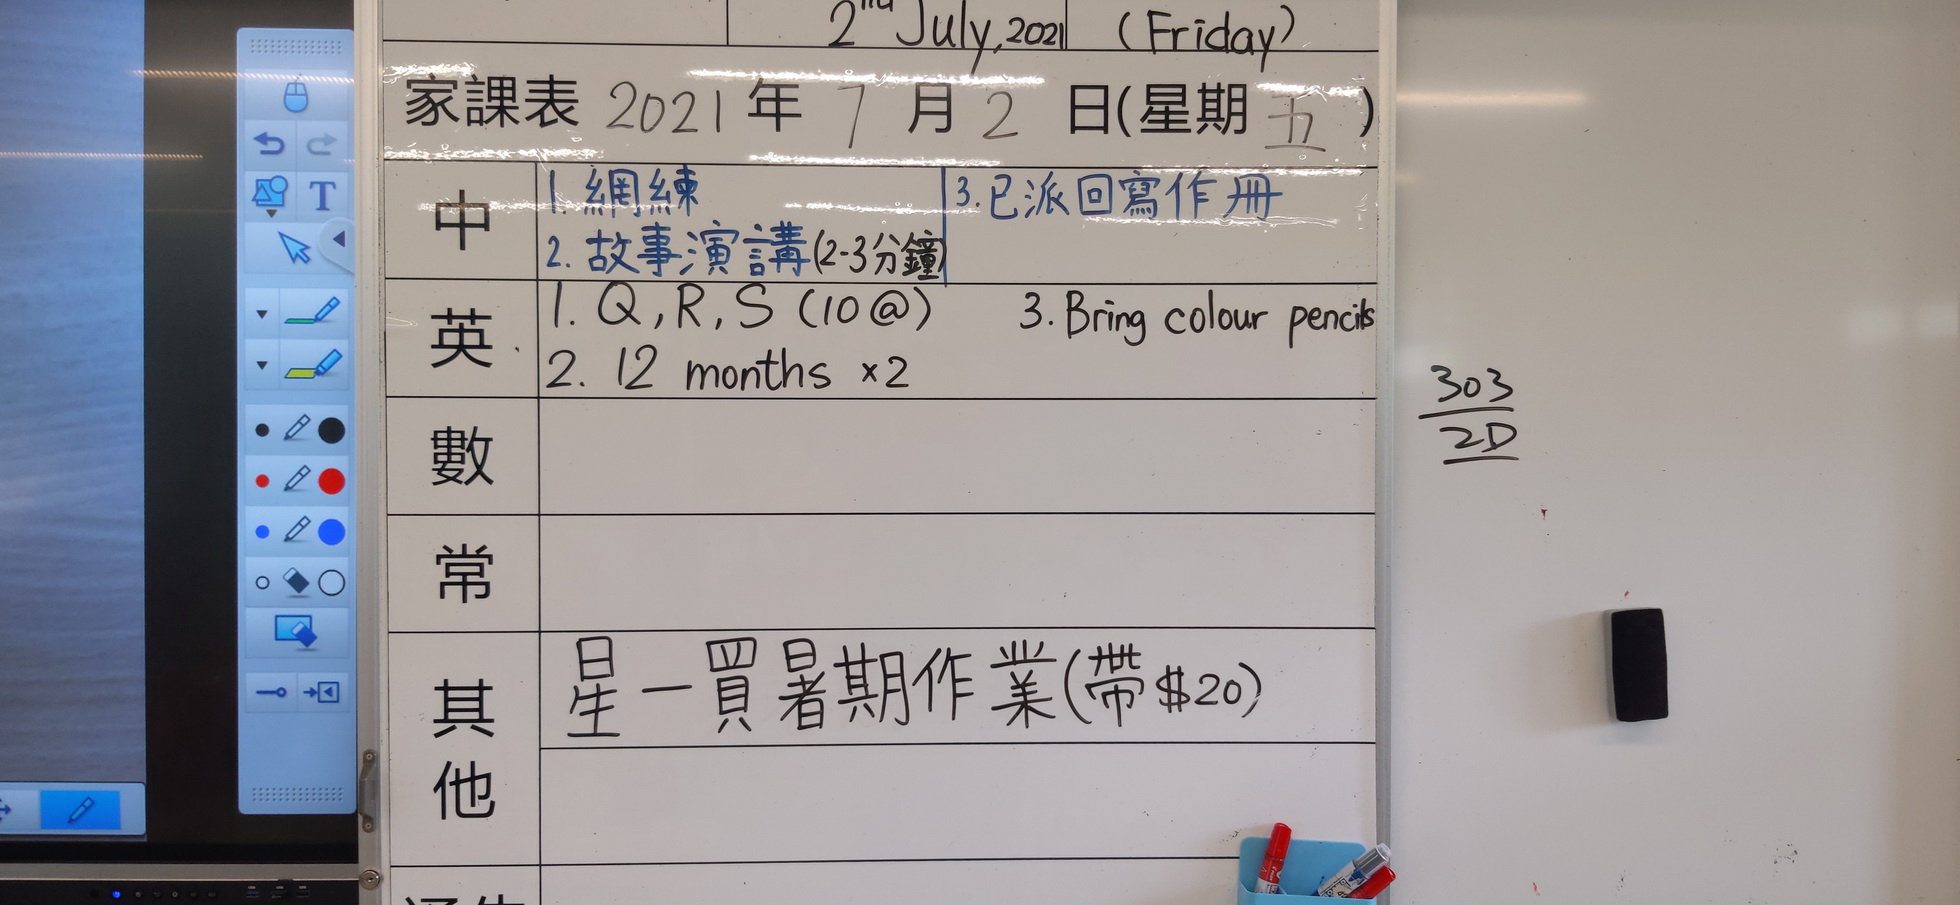 2nd July, 2021 (Friday)
家課表 2021 年 7 月 2 日(星期 五 )
中
1. 網練
2. 故事演講(2-3分鐘)
3. 已派回寫作冊
英
1. Q, R, S (10@)
2. 12 months ×2
3. Bring colour pencils
數
常
其他
星一買暑期作業(帶$20)
303
2D
T